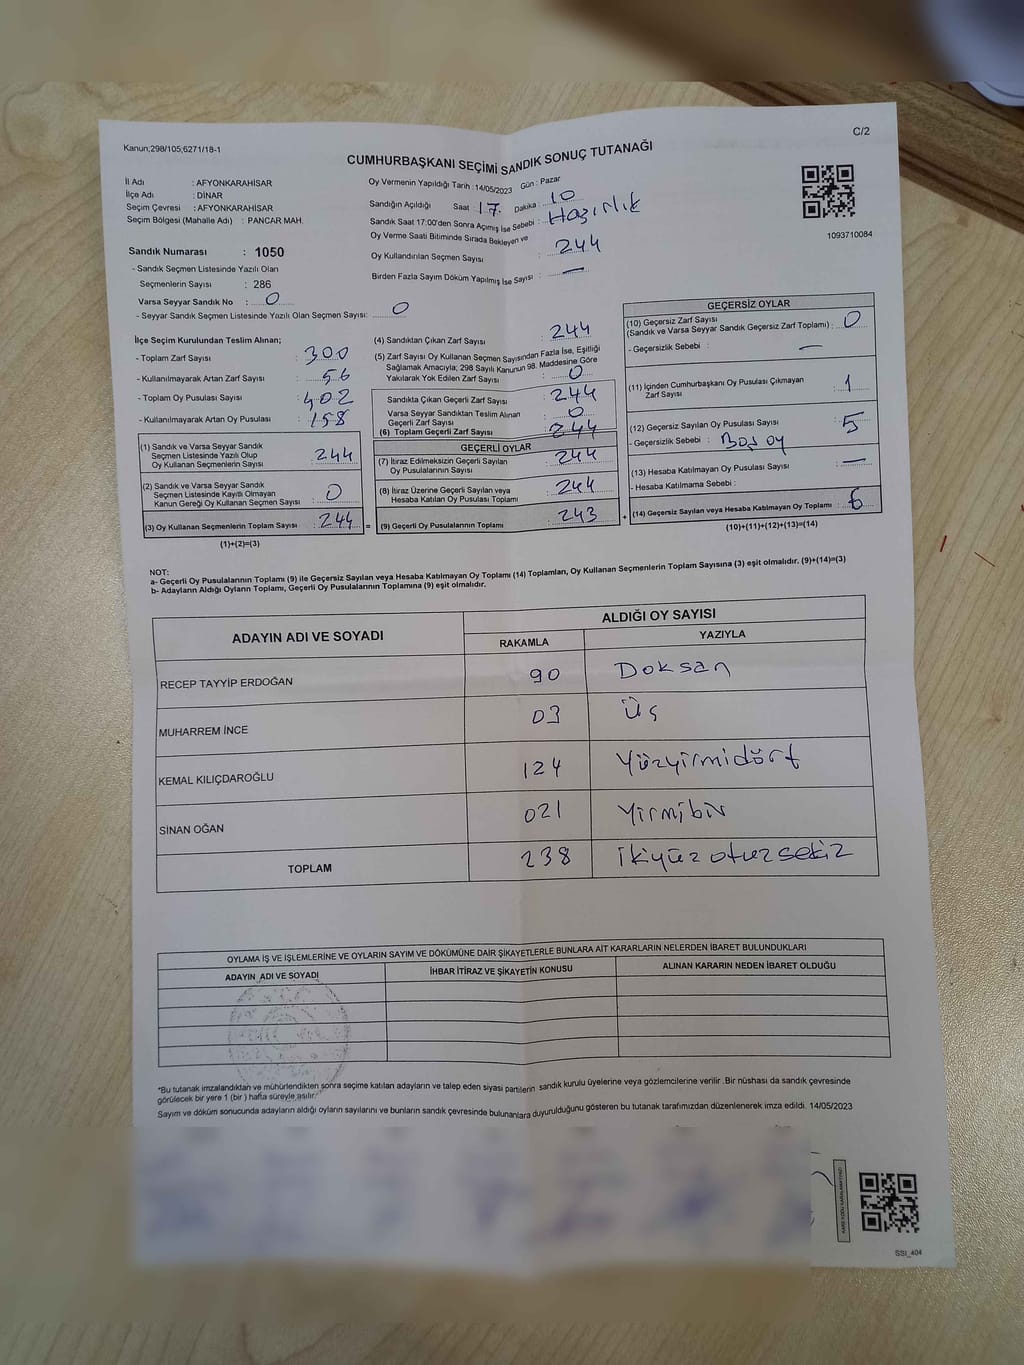 Kanun;298/105,6271/18-1
C/2
CUMHURBAŞKANI SEÇİMİ SANDIK SONUÇ TUTANAĞI
İl Adı : AFYONKARAHİSAR
İlçe Adı : DİNAR
Seçim Çevresi : AFYONKARAHİSAR
Seçim Bölgesi (Mahalle Adı) : PANCAR MAH.
Oy Vermenin Yapıldığı Tarih : 14/05/2023 Gün : Pazar
Sandığın Açıldığı Saat : 17. Dakika : 10
Sandık Saat 17:00'den Sonra Açılmış İse Sebebi : Hazırlık
Oy Verme Saati Bitiminde Sırada Bekleyen ve
Oy Kullandırılan Seçmen Sayısı : 244
Birden Fazla Sayım Döküm Yapılmış İse Sayısı : —
1093710084
Sandık Numarası : 1050
- Sandık Seçmen Listesinde Yazılı Olan
Seçmenlerin Sayısı : 286
Varsa Seyyar Sandık No : 0
- Seyyar Sandık Seçmen Listesinde Yazılı Olan Seçmen Sayısı: 0
İlçe Seçim Kurulundan Teslim Alınan;
- Toplam Zarf Sayısı : 300
- Kullanılmayarak Artan Zarf Sayısı : 56
- Toplam Oy Pusulası Sayısı : 402
- Kullanılmayarak Artan Oy Pusulası : 158
(1) Sandık ve Varsa Seyyar Sandık
Seçmen Listesinde Yazılı Olup
Oy Kullanan Seçmenlerin Sayısı : 244
(2) Sandık ve Varsa Seyyar Sandık
Seçmen Listesinde Kayıtlı Olmayan
Kanun Gereği Oy Kullanan Seçmen Sayısı : 0
(3) Oy Kullanan Seçmenlerin Toplam Sayısı : 244 =
(1)+(2)=(3)
(4) Sandıktan Çıkan Zarf Sayısı : 244
(5) Zarf Sayısı Oy Kullanan Seçmen Sayısından Fazla İse, Eşitliği
Sağlamak Amacıyla; 298 Sayılı Kanunun 98. Maddesine Göre
Yakılarak Yok Edilen Zarf Sayısı : 0
Sandıkta Çıkan Geçerli Zarf Sayısı : 244
Varsa Seyyar Sandıktan Teslim Alınan
Geçerli Zarf Sayısı : 0
(6) Toplam Geçerli Zarf Sayısı : 244
GEÇERLİ OYLAR
(7) İtiraz Edilmeksizin Geçerli Sayılan
Oy Pusulalarının Sayısı : 244
(8) İtiraz Üzerine Geçerli Sayılan veya
Hesaba Katılan Oy Pusulası Toplamı : 244
(9) Geçerli Oy Pusulalarının Toplamı : 243 +
GEÇERSİZ OYLAR
(10) Geçersiz Zarf Sayısı
(Sandık ve Varsa Seyyar Sandık Geçersiz Zarf Toplamı) : 0
- Geçersizlik Sebebi : —
(11) İçinden Cumhurbaşkanı Oy Pusulası Çıkmayan
Zarf Sayısı : 1
(12) Geçersiz Sayılan Oy Pusulası Sayısı : 5
- Geçersizlik Sebebi : Boş oy
(13) Hesaba Katılmayan Oy Pusulası Sayısı : —
- Hesaba Katılmama Sebebi :
(14) Geçersiz Sayılan veya Hesaba Katılmayan Oy Toplamı : 6
(10)+(11)+(12)+(13)=(14)
NOT:
a- Geçerli Oy Pusulalarının Toplamı (9) ile Geçersiz Sayılan veya Hesaba Katılmayan Oy Toplamı (14) Toplamları, Oy Kullanan Seçmenlerin Toplam Sayısına (3) eşit olmalıdır. (9)+(14)=(3)
b- Adayların Aldığı Oyların Toplamı, Geçerli Oy Pusulalarının Toplamına (9) eşit olmalıdır.
ADAYIN ADI VE SOYADI
ALDIĞI OY SAYISI
RAKAMLA YAZIYLA
RECEP TAYYİP ERDOĞAN 90 Doksan
MUHARREM İNCE 03 Üç
KEMAL KILIÇDAROĞLU 124 Yüzyirmidört
SİNAN OĞAN 021 Yirmibir
TOPLAM 238 İkiyüz otuz sekiz
OYLAMA İŞ VE İŞLEMLERİNE VE OYLARIN SAYIM VE DÖKÜMÜNE DAİR ŞİKAYETLERLE BUNLARA AİT KARARLARIN NELERDEN İBARET BULUNDUKLARI
ADAYIN ADI VE SOYADI İHBAR İTİRAZ VE ŞİKAYETİN KONUSU ALINAN KARARIN NEDEN İBARET OLDUĞU
*Bu tutanak imzalandıktan ve mühürlendikten sonra seçime katılan adayların ve talep eden siyasi partilerin sandık kurulu üyelerine veya gözlemcilerine verilir. Bir nüshası da sandık çevresinde
görülecek bir yere 1 (bir) hafta süreyle asılır.
Sayım ve döküm sonucunda adayların aldığı oyların sayılarını ve bunların sandık çevresinde bulunanlara duyurulduğunu gösteren bu tutanak tarafımızdan düzenlenerek imza edildi. 14/05/2023
SSI_404